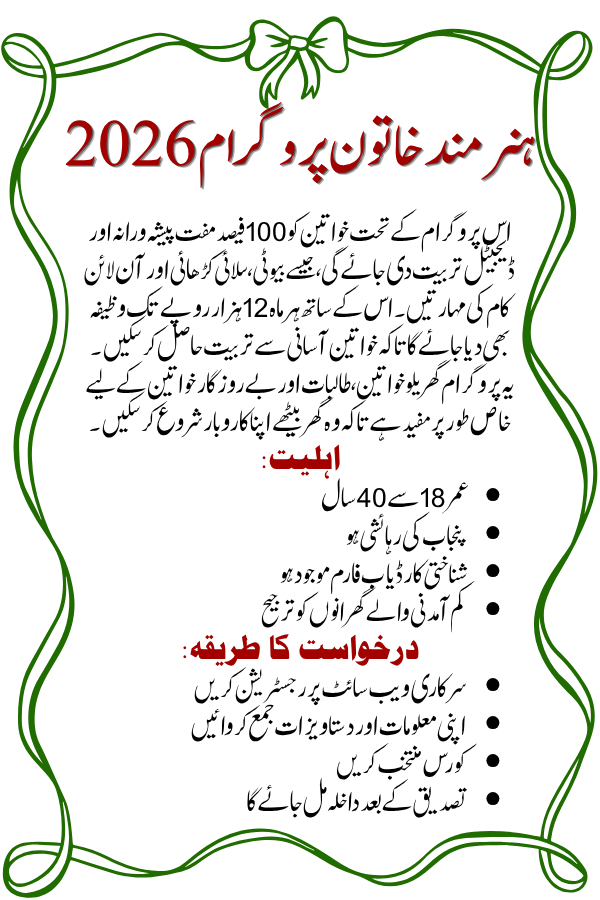 ہنر مند خاتون پروگرام 2026
اس پروگرام کے تحت خواتین کو 100 فیصد مفت پیشہ ورانہ اور
ڈیجیٹل تربیت دی جائے گی، جیسے بیوٹی، سلائی کڑھائی اور آن لائن
کام کی مہارتیں۔ اس کے ساتھ ہر ماہ 12 ہزار روپے تک وظیفہ
بھی دیا جائے گا تاکہ خواتین آسانی سے تربیت حاصل کر سکیں۔
یہ پروگرام گھریلو خواتین، طالبات اور بے روزگار خواتین کے لیے
خاص طور پر مفید ہے تاکہ وہ گھر بیٹھے اپنا کاروبار شروع کر سکیں۔
اہلیت:
● عمر 18 سے 40 سال
● پنجاب کی رہائشی ہو
● شناختی کارڈ یا ب فارم موجود ہو
● کم آمدنی والے گھرانوں کو ترجیح
درخواست کا طریقہ:
● سرکاری ویب سائٹ پر رجسٹریشن کریں
● اپنی معلومات اور دستاویزات جمع کروائیں
● کورس منتخب کریں
● تصدیق کے بعد داخلہ مل جائے گا